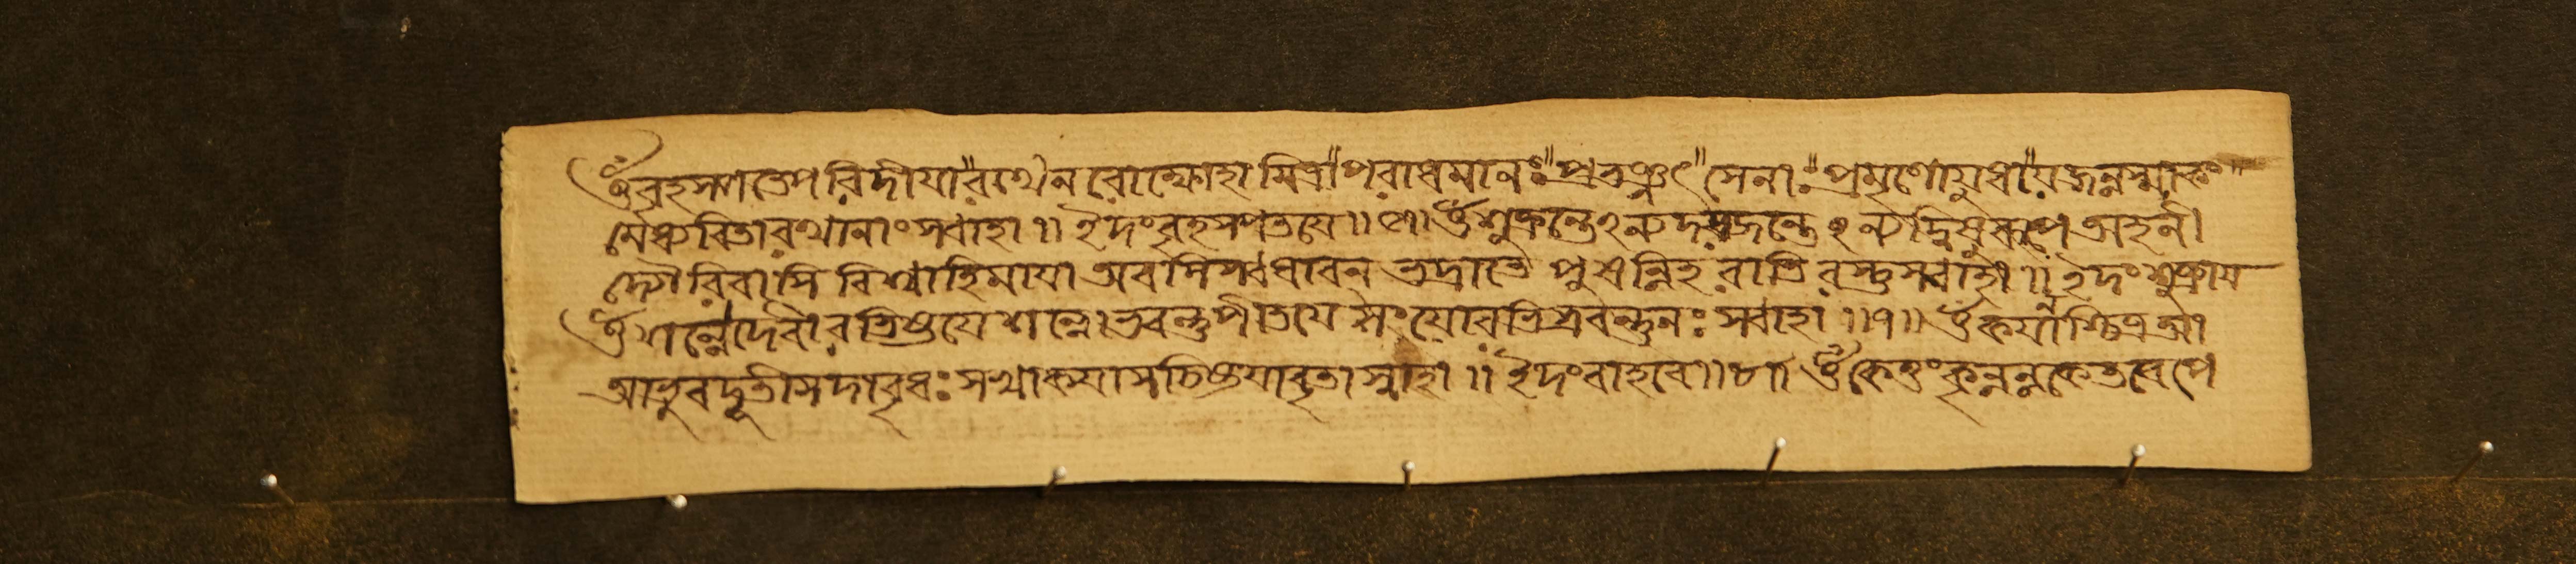 ওঁ বৃহস্পতে পরিদীয়া রথেন রক্ষোহা মিত্রাঁ পবাধমানঃ প্রভঞ্জৎ সেনাঃ প্রমৃণো যুধা যজন্নস্মাকং
মেধ্যবিতা রথানাং সবাহা ॥ ইদং বৃহসপতয়ে ॥ ওঁ শুক্রন্তে ঽন্যদ যজন্তে ঽন্যদ্বিষুরূপে অহনী
দ্যৌরিবাসি বিশ্বাহি মায়া অবসি সবধাবন ভদ্রাতে পুষন্নিহ রাতিরস্তু সবাহা ॥ ইদং শুক্রায়
ওঁ শন্নো দেবীরভিষ্টয়ে শন্নো ভবন্তু পীতয়ে সংযোরভিস্রবন্তু নঃ সবাহা ॥ ৭ ॥ ওঁ কয়া নশ্চিত্র
আভুবদূতী সদাবৃধঃ সখা কয়া সচিষ্ঠয়া বৃতা স্বাহা ॥ ইদং রাহবে ॥ ৮ ॥ ওঁ কেতুং কৃন্নন্নকেতবে পে